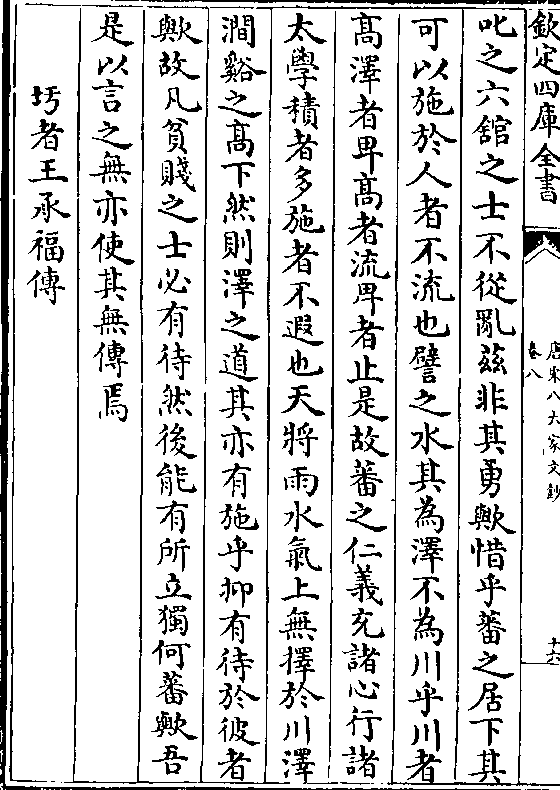 欽定四庫全書
唐宋八大家文鈔
卷八
十六
叱之六舘之士不從亂茲非其勇歟惜乎蕃之居下其
可以施於人者不流也譬之水其為澤不為川乎川者
髙澤者卑髙者流卑者止是故蕃之仁義充諸心行諸
太學積者多施者不遐也天將雨水氣上無擇於川澤
澗谿之髙下然則澤之道其亦有施乎抑有待於彼者
歟故凡貧賤之士必有待然後能有所立獨何蕃歟吾
是以言之無亦使其無傳焉
圬者王承福傳